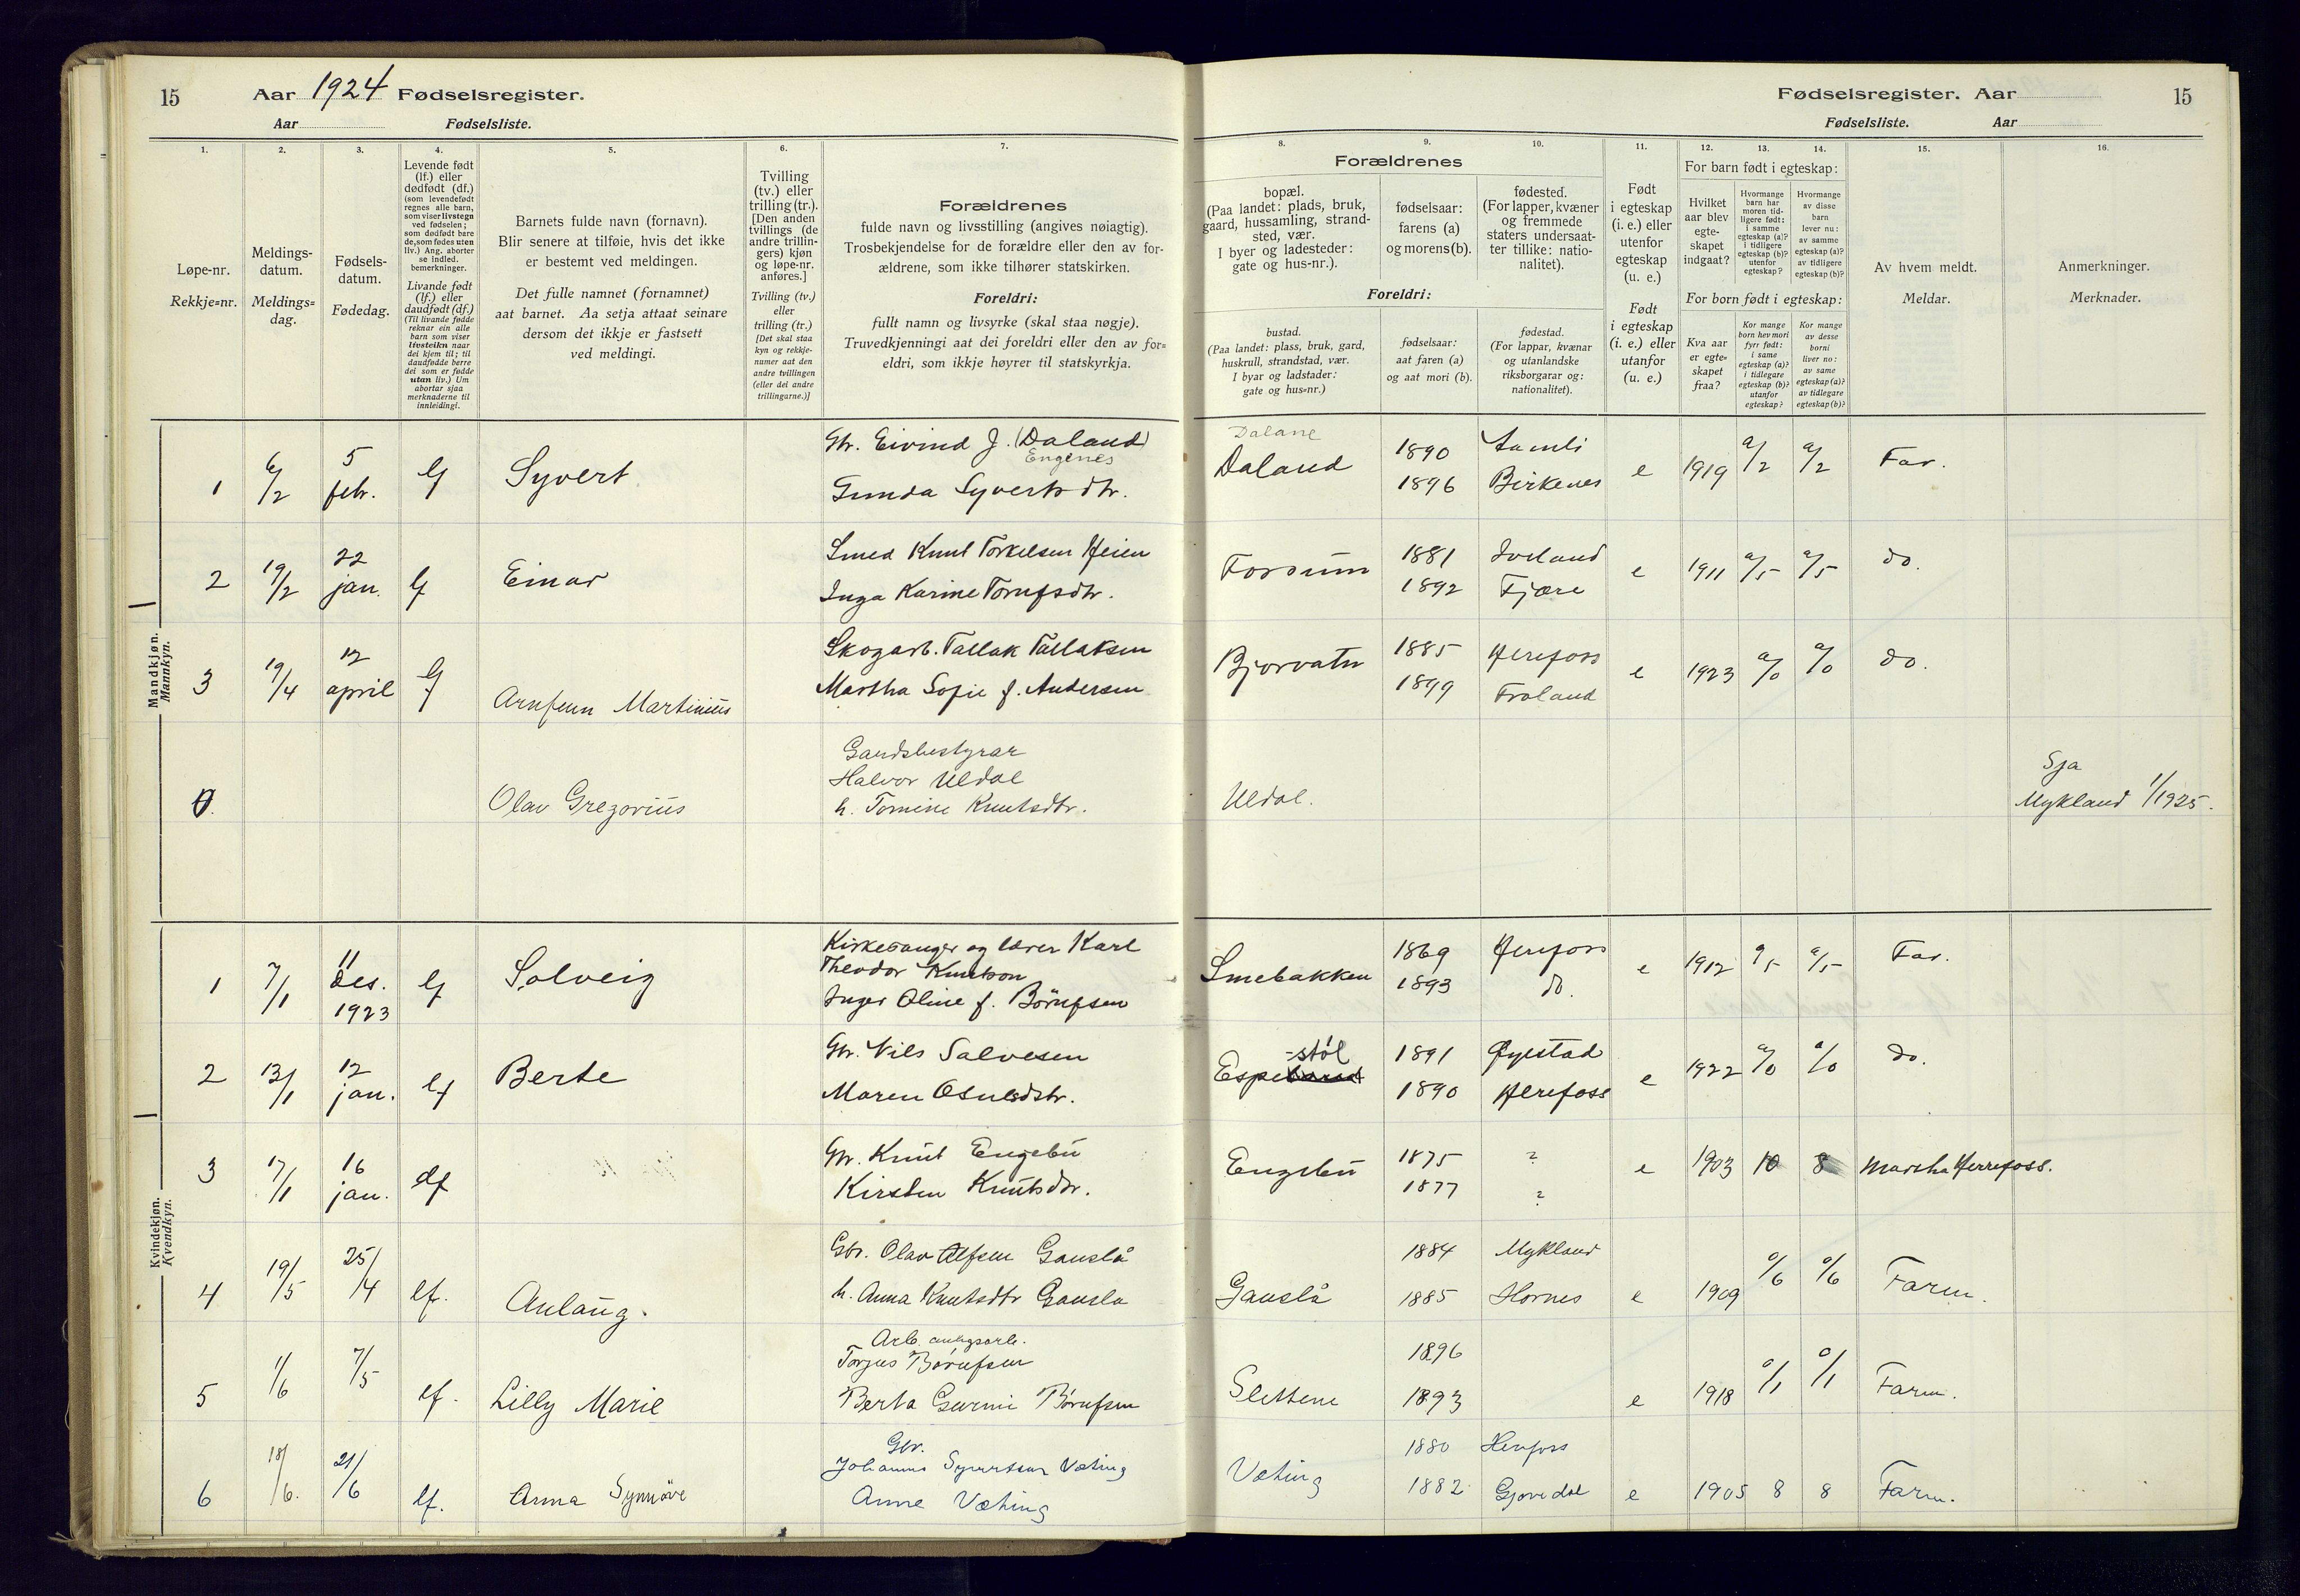 15
Aar 1924 Fødselsregister.
Aar Fødselsliste.
Fødselsregister. Aar
15
Fødselsliste. Aar
1.
2.
3.
4.
5.
6.
7.
8.
9.
10.
11.
12.
13.
14.
15.
16.
Løpe-nr.
Rekkje=nr.
Meldings-
datum.
Meldings=
dag.
Fødsels-
datum.
Fødedag.
Levende født
(lf.) eller
dødfødt (df.)
(som levendefødt
regnes alle barn,
som viser livstegn
ved fødselen;
som dødfødt bare
de, som fødes uten
liv.) Ang. aborter
se indled.
bemerkninger.
Livande født
(lf.) eller
daudfødt (df.)
(Til livande fødde
reknar ein alle
barn som viser
livsteikn naar
dei kjem til; til
daudfødde berre
dei som er fødde
utan liv.) Um
abortar sjaa
merknaderne til
innleidingi.
Barnets fulde navn (fornavn).
Blir senere at tilføie, hvis det ikke
er bestemt ved meldingen.
Det fulle namnet (fornamnet)
aat barnet. Aa setja attaat seinare
dersom det ikkje er fastsett
ved meldingi.
Tvilling
(tv.) eller
trilling (tr.).
[Den anden
tvillings (de
andre trillin-
gers) kjøn
og løpe-nr.
anføres.]
Tvilling (tv.)
eller
trilling (tr.)
[Det skal staa
kyn og rekkje-
numer aat den
andre tvillingen
(eller dei andre
trillingarne.)]
Forældrenes
fulde navn og livsstilling (angives nøiagtig).
Trosbekjendelse for de forældre eller den av for-
ældrene, som ikke tilhører statskirken.
Foreldri:
fullt namn og livsyrke (skal staa nøgje).
Truvedkjenningi aat dei foreldri eller den av for=
eldri, som ikkje høyrer til statskyrkja.
Forældrenes
bopæl.
(Paa landet: plads, bruk,
gaard, hussamling, strand-
sted, vær.
I byer og ladesteder:
gate og hus-nr.).
fødselsaar:
farens (a)
og morens (b).
fødested.
(For lapper, kvæner
og fremmede
staters undersaat-
ter tillike: natio-
nalitet).
Foreldri:
bustad.
(Paa landet: plass, bruk, gard,
huskrull, strandstad, vær.
I byar og ladstader:
gate og hus=nr.)
fødselsaar:
aat faren (a)
og aat mori (b).
fødestad.
(For lappar, kvænar
og utanlandske
riksborgarar og:
nationalitet).
Født
i egteskap
(i. e.) eller
utenfor
egteskap
(u. e.)
Født
i egteskap
(i. e.) eller
utanfor
(u. e.)
For barn født i egteskap:
Hvilket
aar blev
egte-
skapet
indgaat?
Hvormange
barn har
moren tid-
ligere født:
i samme
egteskap (a)?
i tidligere
egteskap (b)?
utenfor
egteskap?
Hvormange
av disse
barn
lever nu:
av samme
egteskap (a)?
av tidligere
egteskap (b)?
For born født i egteskap:
Kva aar
er egte=
skapet
fraa?
Kor mange
born hev mori
fyrr født:
i same
egteskap (a)?
i tidlegare
egteskap (b)?
utanfor
egteskap?
Kor mange
av desse
borni
liver no:
av same
egteskap (a)?
av tidlegare
egteskap (b)?
Av hvem meldt.
Meldar.
Anmerkninger.
Merknader.
Mandkjøn.
Mannkyn.
1 6/2 5 febr. lf Syvert Gbr. Eivind J. (Daland) Engenes
Gunda Syvertsdtr.
Dalane
Daland 1890 1896 Aamli Birkenes e 1919 a/2 a/2 Far.
2 19/2 22 jan. lf Einar Smed Knut Torkelsen Heien
Inga Karine
Fossum 1881 1892 Iveland Fjære e 1911 a/5 a/5 do.
3 19/4 12 april lf Arnfinn Martinius Skogarb. Tallak Tallaksen
Martha Sofie f. Andersen
Bjorvatn 1885 1899 Herefoss Froland e 1923 a/0 a/0 do.
0. Olav Gregorius Gardsbestyrar
Halvor Uldal
h. Tomine Knutsdtr.
Uldal. Sja
Mykland 1/1925.
Kvindekjøn.
Kvendkyn.
1 7/1 11 des. 1923 lf Solveig Kirkesanger og lærer Karl
Theodor Knutson
Inger Oline f. Børufsen
Smebakken 1869 1893 Herefoss do. e 1912 a/5 a/5 Far.
2 13/1 12 jan. lf Berte Gbr. Nils Salvesen
Maren Osuldsdtr.
Espestøl 1891 1890 Øyestad Herefoss e 1922 a/0 a/0 do.
3 17/1 16 jan. df Gbr. Knut Engebu
Kirsten Knutsdtr.
Engebu 1875 1877 ? ? e 1903 10 8 Martha Herrefoss.
4 19/5 25/4 lf. Anlaug. Gbr. Olav Olfsen Gauslå
h. Anna Knutsdtr Gausla
Gauslå 1884 1885 Mykland Hornes e 1909 0/6 0/6 Farm.
5 1/6 7/5 lf. Lilly Marie Arb. anlegsarb.
Torjus Børufsen
Berta Gurine Børufsen
Slettene 1896 1893 e 1918 0/1 0/1 Farm.
6 18/6. 21/6 lf. Anna Synnöve Gbr.
Johannes Syvertsen Væting
Anne Væting
Væting 1880 1882 Herefoss Gjovdal e 1905 8 8 Farm.